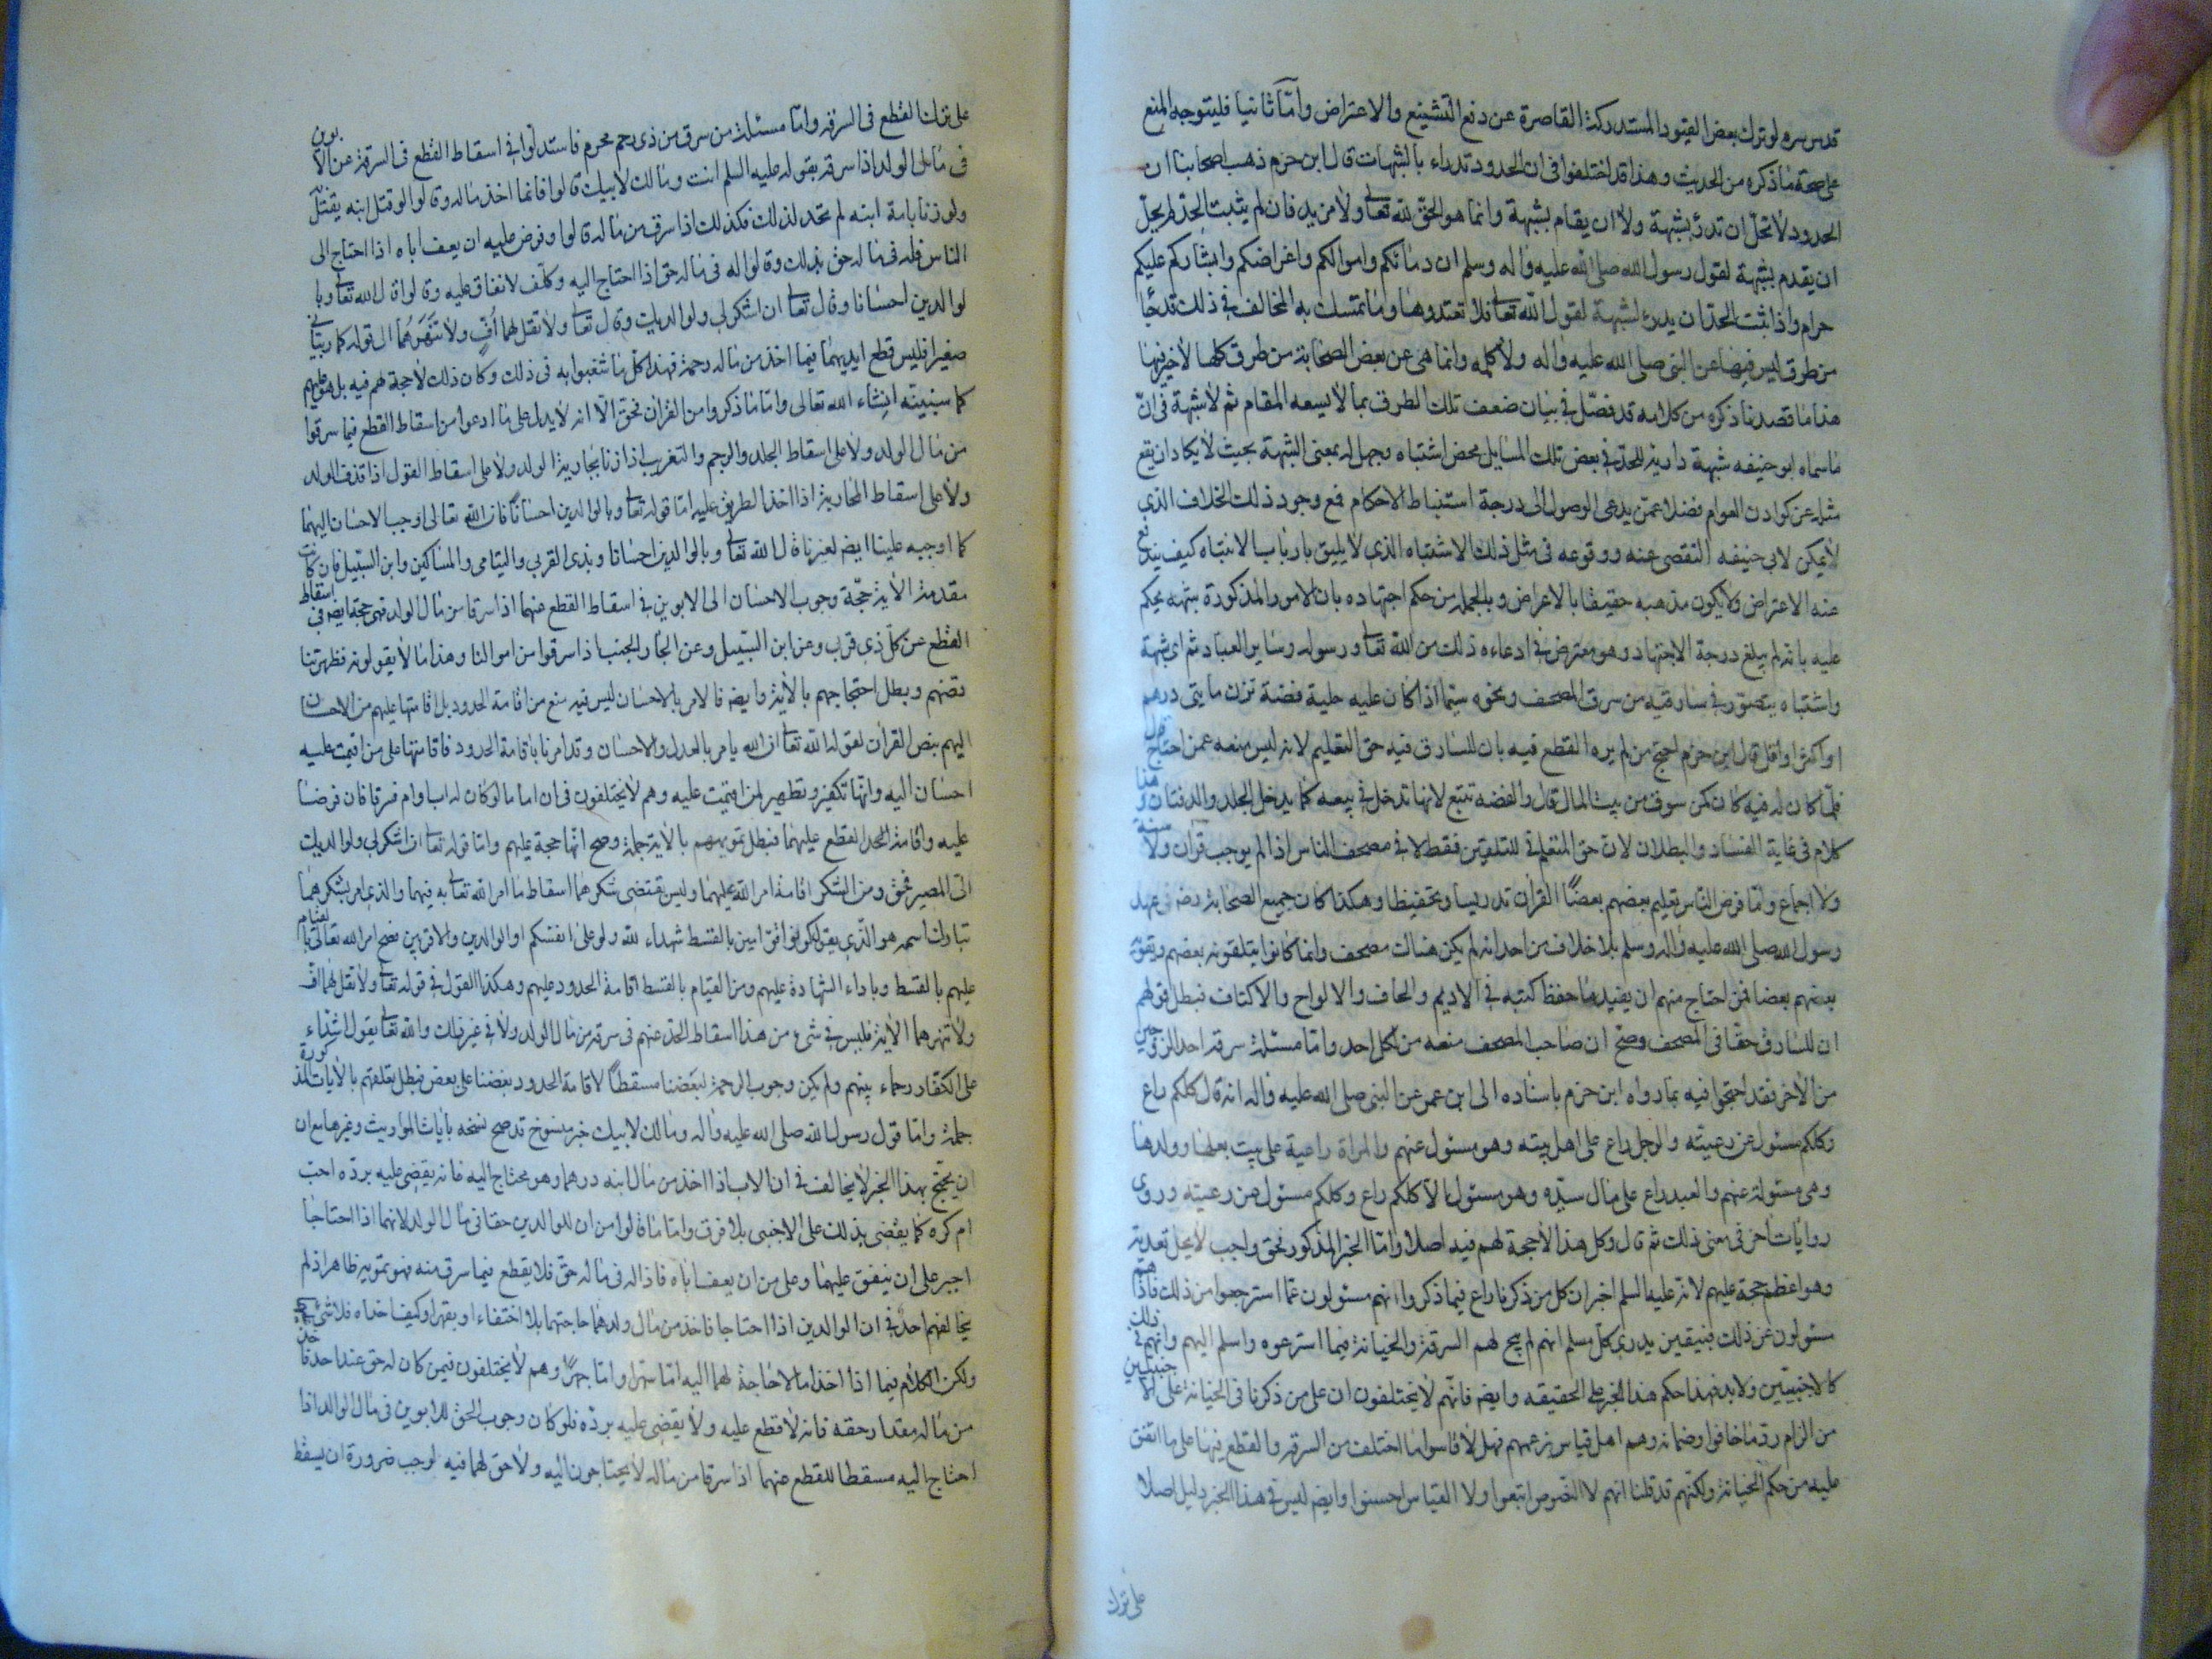 قدس سره لو ترك بعض القيود المستدركة القاصرة عن دفع التشنيع والاعتراض وامّا ثانيا فليتوجه المنع
على صحة ما ذكره من الحديث وهذا قد اختلفوا فى ان الحدود تدراء بالشبهات قال ابن حزم ذهب اصحابنا ان
الحدود لا تحلّ ان تدرؤ بشبهة ولا ان يقام بشبهة وانما هو الحق لله تعا ولا مزيد فان لم يثبت الحدّ لم يحلّ
ان يقدم بشبهة لقول رسول الله صلى الله عليه واله وسلم ان دمائكم واموالكم واعراضكم وابشاركم عليكم
حرام واذا ثبت الحدّ ان يدرء لشبهة لقول الله تعا فلا تعتدوها وما تمسك به المخالف فى ذلك قد جا
من طرق ليس فيها عن النبى صلى الله عليه واله ولا كلمه وانما هى عن بعض الصحابة من طرق كلها لا خير فيها
هذا ما قصدنا ذكره من كلامه قد فصّل فى بيان ضعف تلك الطرق بما لا يسعه المقام ثم لا شبهة فى انّ
ما سماه ابو حنيفه شبهة دارية للحدّ فى بعض تلك المسايل محض اشتباه وجهل له بمعنى الشبهة بحيث لا يكاد ان يقع
مثله عن كوادن العوام فضلا عمّن يدعى الوصول الى درجة استنباط الاحكام فمع وجود ذلك الخلاف الذى
لا يمكن لابى حنيفه التقصى عنه ووقوعه فى مثل ذلك الاشتباه الذى لا يليق بارباب الانتباه كيف يندفع
عنه الاعتراض ولا يكون مذهبه حقيقا بالاعراض وبالجمله من حكم اجتهاده بان الامور المذكورة شبهه يحكم
عليه بانه لم يبلغ درجة الاجتهاد وهو معترض فى ادعاءه ذلك من الله تعا ورسوله وساير العباد ثم اى شبهة
واشتباه يتصوّر فى سارقيه من سرق المصحف ونحوه سيّما اذا كان عليه حلية فضة تزن مايتى درهم
او اكثر او اقل قال ابن حزم احتج من لم يره القطع فيه بان للسارق فيه حق التعليم لانه ليس منعه عمن احتاج
فلمّا كان له فيه كان كمن سرق من بيت المال قال والفضه تتبع لانها تدخل فى بيعه كما يدخل الجلد والدفتان وهذا
كلام فى غاية الفساد والبطلان لان حق المتعلم فى التلقين فقط لا فى مصحف الناس اذا لم يوجب قرآن ولا سنة
ولا اجماع وامّا فرض الناس تعليم بعضهم بعضًا القرآن تدريسا وتحفيظا وهكذا كان جميع الصحابة رضه فى عهد
رسول الله صلى الله عليه واله وسلم بلا خلاف من احد انه لم يكن هناك مصحف وانما كانوا يتلقونه بعضهم ويقرئ
بعضهم بعضا فمن احتاج منهم ان يقيد ما حفظ كتبه فى الاديم والحاف والالواح والاكتاف فبطل قولهم
ان للسارق حقّا فى المصحف وصحّ ان صاحب المصحف منعه من كل احد وامّا مسئلة سرقة احد الزوجين
من الآخر فقد احتجوا فيه بما رواه ابن حزم باسناده الى ابن عمر عن النبى صلى الله عليه واله انه قال كلكم راع
وكلكم مسئول عن رعيته والرجل راع على اهل بيته وهو مسئول عنهم والمراة راعية على بيت بعلها وولدها
وهى مسئولة عنهم والعبد راع على مال سيّده وهو مسئول الا كلكم راع وكلكم مسئول عن رعيته وروى
روايات اخر فى معنى ذلك ثم قال وكل هذا لا حجة لهم فيه اصلا وامّا الخبر المذكور فحق واجب لا يحل تعديته
وهو اعظم حجة عليهم لانه عليه السلم اخبر ان كل من ذكرنا راع فيما ذكروا انهم مسئولون عمّا استرعوا من ذلك فاذا هم
مسئولون عن ذلك فبيقين يدرى كل مسلم انهم لم يبح لهم السرقة والخيانة فيما استرعوه واسلم اليهم وانهم فى ذلك
كالاجنبيين ولا بد فهذا حكم هذا الخبر على الحقيقه وايضه فانّهم لا يختلفون ان على من ذكرنا فى الخيانة على الاجنبيين
من الزام رد ما خانوا وضمانه وهم اهل قياس بزعمهم فهل لا قاسوا ما اختلف من السرقه والقطع فيها على ما اتفق
عليه من حكم الخيانة ولكنّهم قد قلنا انهم لا النصوص اتبعوا ولا القياس احسنوا وايضه ليس فى هذا الخبر دليل اصلا
على ترك
على ترك القطع فى السرقه وامّا مسئلة من سرق من ذى رحم محرم فاستدلّوا فى اسقاط القطع فى السرقة عن الابوين
فى مال الولد اذا سرقه بقوله عليه السلم انت ومالك لابيك قالوا فانما اخذ ماله وقالوا لو قتل ابنه يقتل
ولو زنا بامة ابنه لم تحد لذلك فكذلك اذا سرق من ماله قالوا وفرض عليه ان يعف اباه اذا احتاج الى
الناس فله فى ماله حق بذلك وقالوا له فى ماله حق اذا احتاج اليه وكلّف الانفاق عليه وقالوا قال الله تعا وبا
لوالدين احسانا وقال تعا ان اشكر لى ولوالديك وقال تعا ولا تقل لهما اُفٍّ ولا تَنهَرهُما الى قوله كما ربيانى
صغيرا فليس قطع ايديهما فيما اخذ من ماله رحمة فهذا كل ما شغبوا به فى ذلك وكان ذلك لا حجة لهم فيه بل هو عليهم
كما سنبينه انشاء الله تعالى وامّا ما ذكروا من القرآن فحق الّا انه لا يدل على ما ادعوا من اسقاط القطع فيما سرقوا
من مال الولد ولا على اسقاط الجلد والرجم والتغريب اذا زنا بجارية الولد ولا على اسقاط القول اذا قذف الولد
ولا على اسقاط المحاربة اذا اخذ الطريق عليه امّا قوله تعا وبالوالدين احسانًا فان الله تعالى اوجب الاحسان اليهما
كما اوجبه علينا ايضه لغيرنا قال الله تعا وبالوالدين احسانا وبذى القربى واليتامى والمساكين وابن السبيل فان كانت
مقدمة الآية حجّة وجوب الاحسان الى الابوين فى اسقاط القطع عنهما اذا سرقا من مال الولد فهى حجة ايضه فى اسقاط
القطع عن كلّ ذى قربى وعن ابن السبيل وعن الجار الجنب اذا سرقوا من اموالنا وهذا ما لا يقولونه فظهر تنا
قضهم وبطل احتجاجهم بالآية وايضه فالامر بالاحسان ليس فيه منع من اقامة الحدود بل اقامتها عليهم من الاحسان
اليهم بنص القرآن لقوله الله تعا ان الله يامر بالعدل والاحسان وقد امرنا باقامة الحدود فاقامتها على من اقيمت عليه
احسان اليه وانّها تكفير وتطهير لمن اقيمت عليه وهم لا يختلفون فى ان اماما لو كان له اب وام فسرقا فان فرضا
عليه واقامة الحدّ القطع عليهما فبطل تمويههم بالآية جملة وصح انها حجة عليهم وامّا قوله تعا ان اشكر لى ولوالديك
الىّ المصير فحق ومن الشكر اقامة امر الله عليهما وليس يقتضى شكرهما اسقاط ما امر الله تعا به فيهما والذى امر بشكرهما
تبارك اسمه هو الذّى يقول كونوا قوّامين بالقسط شهداء لله ولو على انفسكم او الوالدين والاقربين فصح امر الله تعالى بالقيام
عليهم بالقسط وباداء الشهادة عليهم ومن القيام بالقسط اقامة الحدود عليهم وهكذا القول فى قوله تعا ولا تقل لهما افّ
ولا تنهرهما الآية فليس فى شئ من هذا اسقاط الحدّ عنهم فى سرقة من مال الولد ولا فى غير ذلك والله تعا يقول اشدّاء
على الكفّار رحماء بينهم ولم يكن وجوب الرحمة لبعضنا مسقطًا لاقامة الحدود بعضنا على بعض فبطل تعلقهم بالآيات المذكورة
جملة وامّا قول رسول الله صلى الله عليه واله ومالك لابيك خبر منسوخ قد صح نسخه بايات المواريث وغيرها مع ان
ان يحتج بهذا الخبر لا يخالف فى ان الاب اذا اخذ من مال ابنه درهما وهو محتاج اليه فانه يقضى عليه بردّه احبّ
ام كره كما يقضى بذلك على الاجنبى بلا فرق وامّا ما قالوا من ان للوالدين حقا فى مال الولد لانهما اذا احتاجا
اجبر على ان ينفق عليهما وعلى من ان يعف اباه فاذا له فى ماله حق فلا يقطع فيما سرق منه فهو تمويه ظاهر اذ لم
يخالفهم احدٌ فى ان الوالدين اذا احتاجا فاخذ من مال ولدهما حاجتهما بلا اختفاء او بقهر او كيف اخذاه فلا شئ
ولكن الكلام فيما اذا اخذا ما لا حاجة لهما اليه امّا سرّا وامّا جهرًا وهم لا يختلفون فيمن كان له حق عند احد فاخذ
من ماله مقدار حقه فانه لا قطع عليه ولا يقضى عليه بردّه فلو كان وجوب الحق للابوين فى مال الوالد اذا
احتاج اليه مسقطا للقطع عنهما اذا سرقا من ماله لا يحتاجون اليه ولا حق لهما فيه لوجب ضرورة ان يسقط